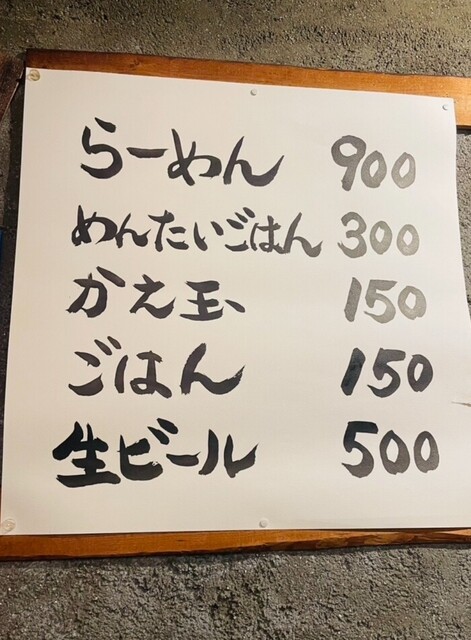 らーめん 900
めんたいごはん 300
かえ玉 150
ごはん 150
生ビール 500